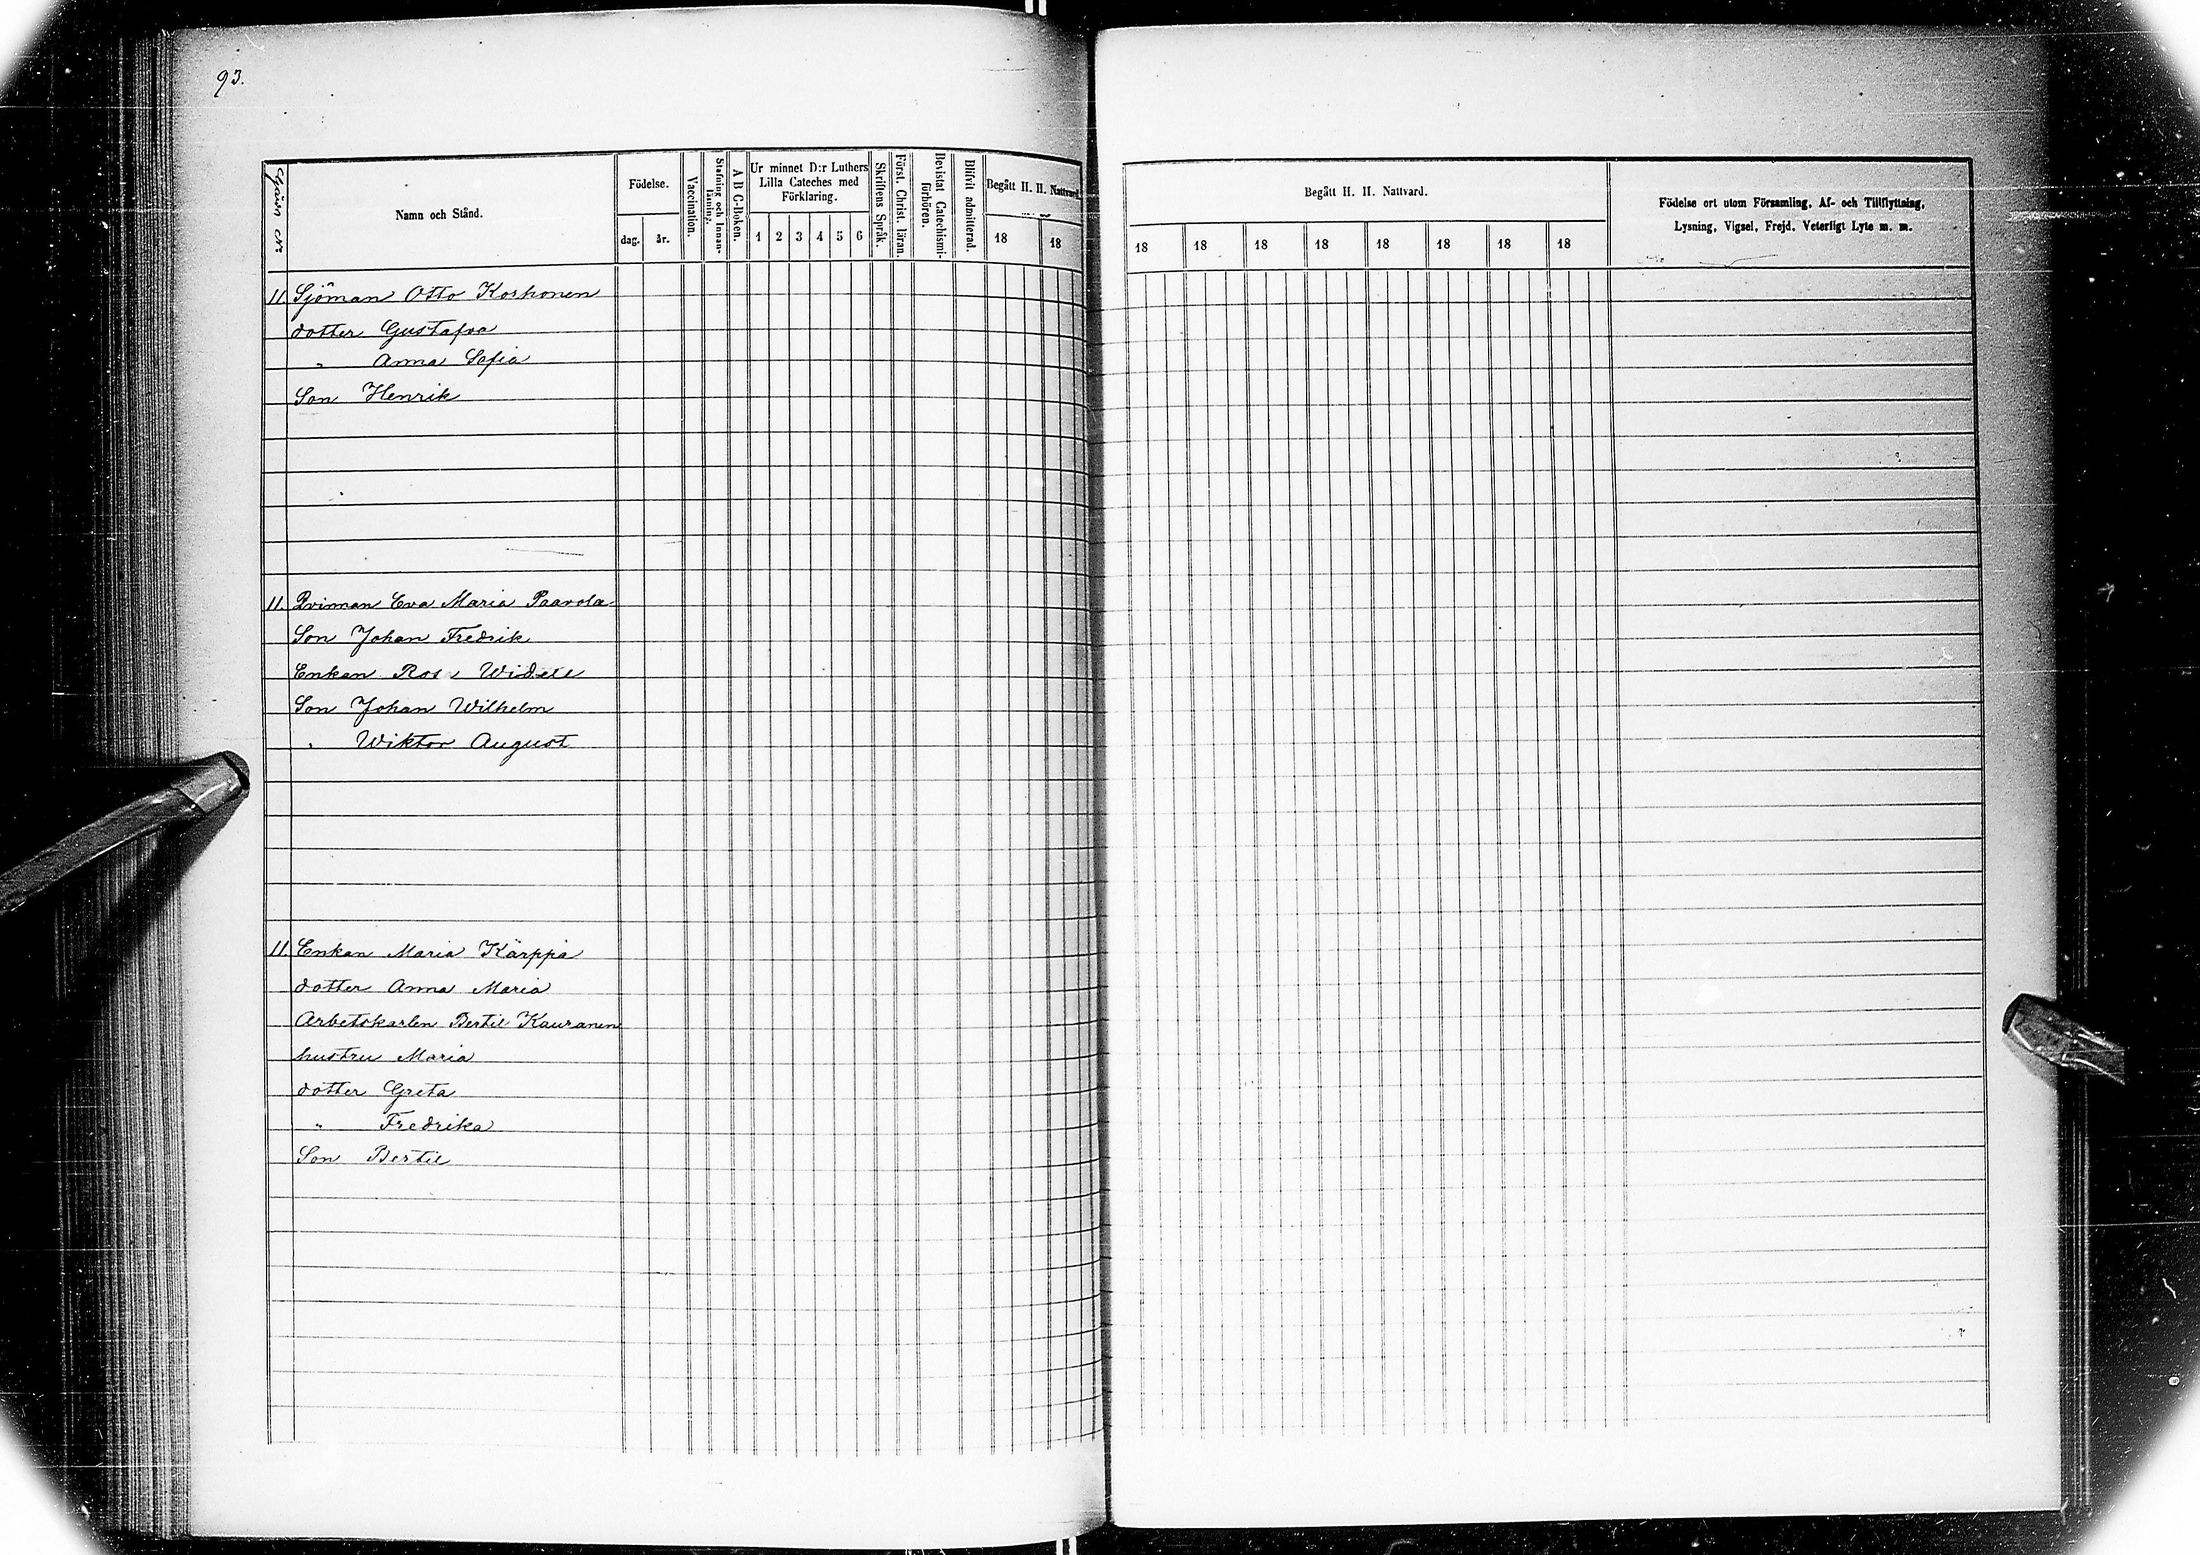 93.
Gårds No
Namn och Stånd.
Födelse.
dag.
år.
Vaccination.
Stafning och Innanläsning.
A B C-Boken.
Ur minnet D:r Luthers
Lilla Cateches med
Förklaring.
1 2 3 4 5 6
Skriftens Språk.
Först. Christ. läran.
Bevistat Catechismiförhören.
Blifvit admitterad.
Begått H. H. Nattvard
18 18
Begått H. H. Nattvard.
18 18 18 18 18 18 18 18
Födelse ort utom Församling, Af- och Tillflyttning,
Lysning, Vigsel, Frejd, Veterligt Lyte m. m.
11. Sjöman Otto Korhonen
dotter Gustafva
" Anna Sofia
Son Henrik
11. Qvinnan Eva Maria Paavola
Son Johan Fredrik
Enkan Rosa Widell
Son Johan Wilhelm
" Wiktor August
11. Enkan Maria Kärppä
dotter Anna Maria
Arbetskarlen Bertil Kauranen
hustru Maria
dotter Greta
" Fredrika
Son Bertil